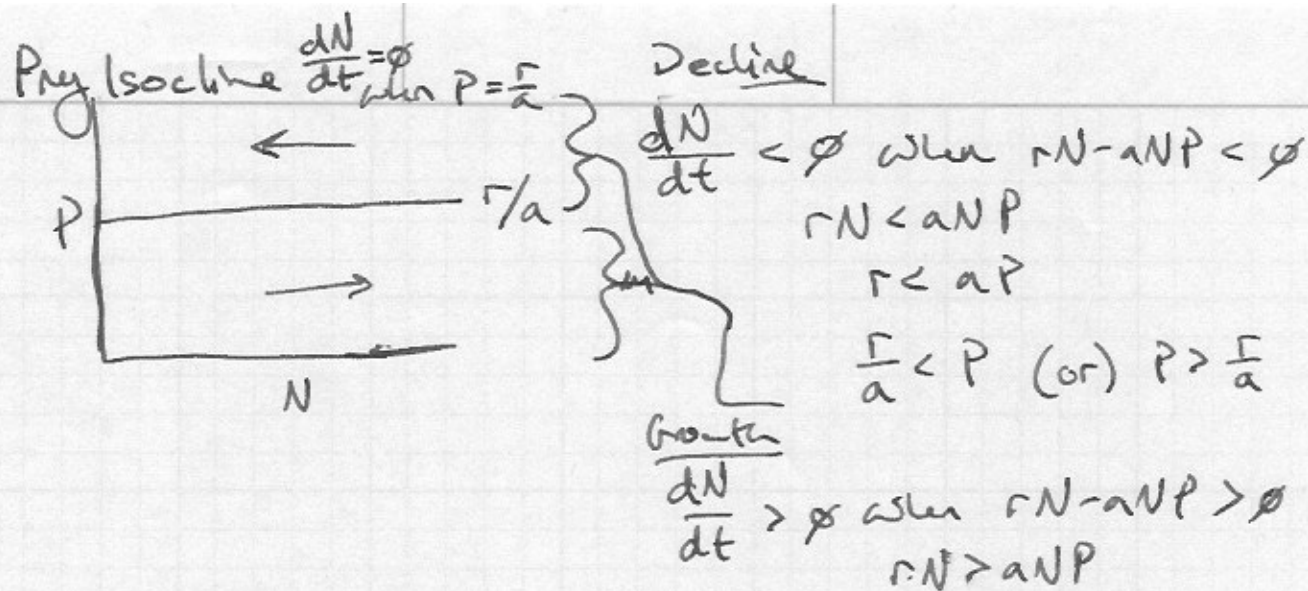 Prey Isocline dN/dt = ∅ when P = r/a
P
r/a
N
Decline
dN/dt < ∅ when rN-aNP < ∅
rN < aNP
r < aP
r/a < P (or) P > r/a
Growth
dN/dt > ∅ when rN-aNP > ∅
rN > aNP